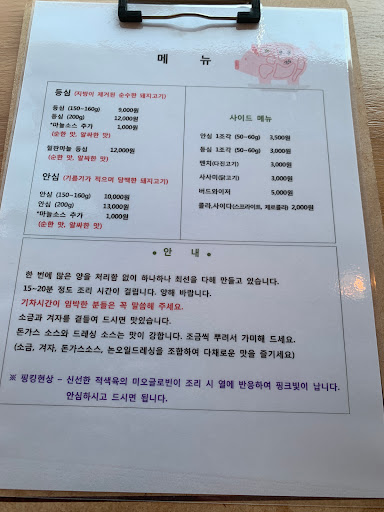 메 뉴
등심 (지방이 제거된 순수한 돼지고기)
등심 (150~160g) 9,000원
등심 (200g) 12,000원
*마늘소스 추가 1,000원
(순한 맛, 알싸한 맛)
철판마늘 등심 12,000원
(순한 맛, 알싸한 맛)
안심 (기름기가 적으며 담백한 돼지고기)
안심 (150~160g) 10,000원
안심 (200g) 13,000원
*마늘소스 추가 1,000원
(순한 맛, 알싸한 맛)
사이드 메뉴
안심 1조각 (50~60g) 3,500원
등심 1조각 (50~60g) 3,000원
멘치(다진고기) 3,000원
사사미(닭고기) 3,000원
버드와이저 5,000원
콜라,사이다(스프라이트, 제로콜라) 2,000원
• 안 내 •
한 번에 많은 양을 처리함 없이 하나하나 최선을 다해 만들고 있습니다.
15~20분 정도 조리 시간이 걸립니다. 양해 바랍니다.
기차시간이 임박한 분들은 꼭 말씀해 주세요.
소금과 겨자를 곁들여 드시면 맛있습니다.
돈가스 소스와 드레싱 소스는 맛이 강합니다. 조금씩 뿌려서 가미해 드세요.
(소금, 겨자, 돈가스소스, 논오일드레싱을 조합하여 다채로운 맛을 즐기세요)
※ 핑킹현상 – 신선한 적색육의 미오글로빈이 조리 시 열에 반응하여 핑크빛이 납니다.
안심하시고 드시면 됩니다.